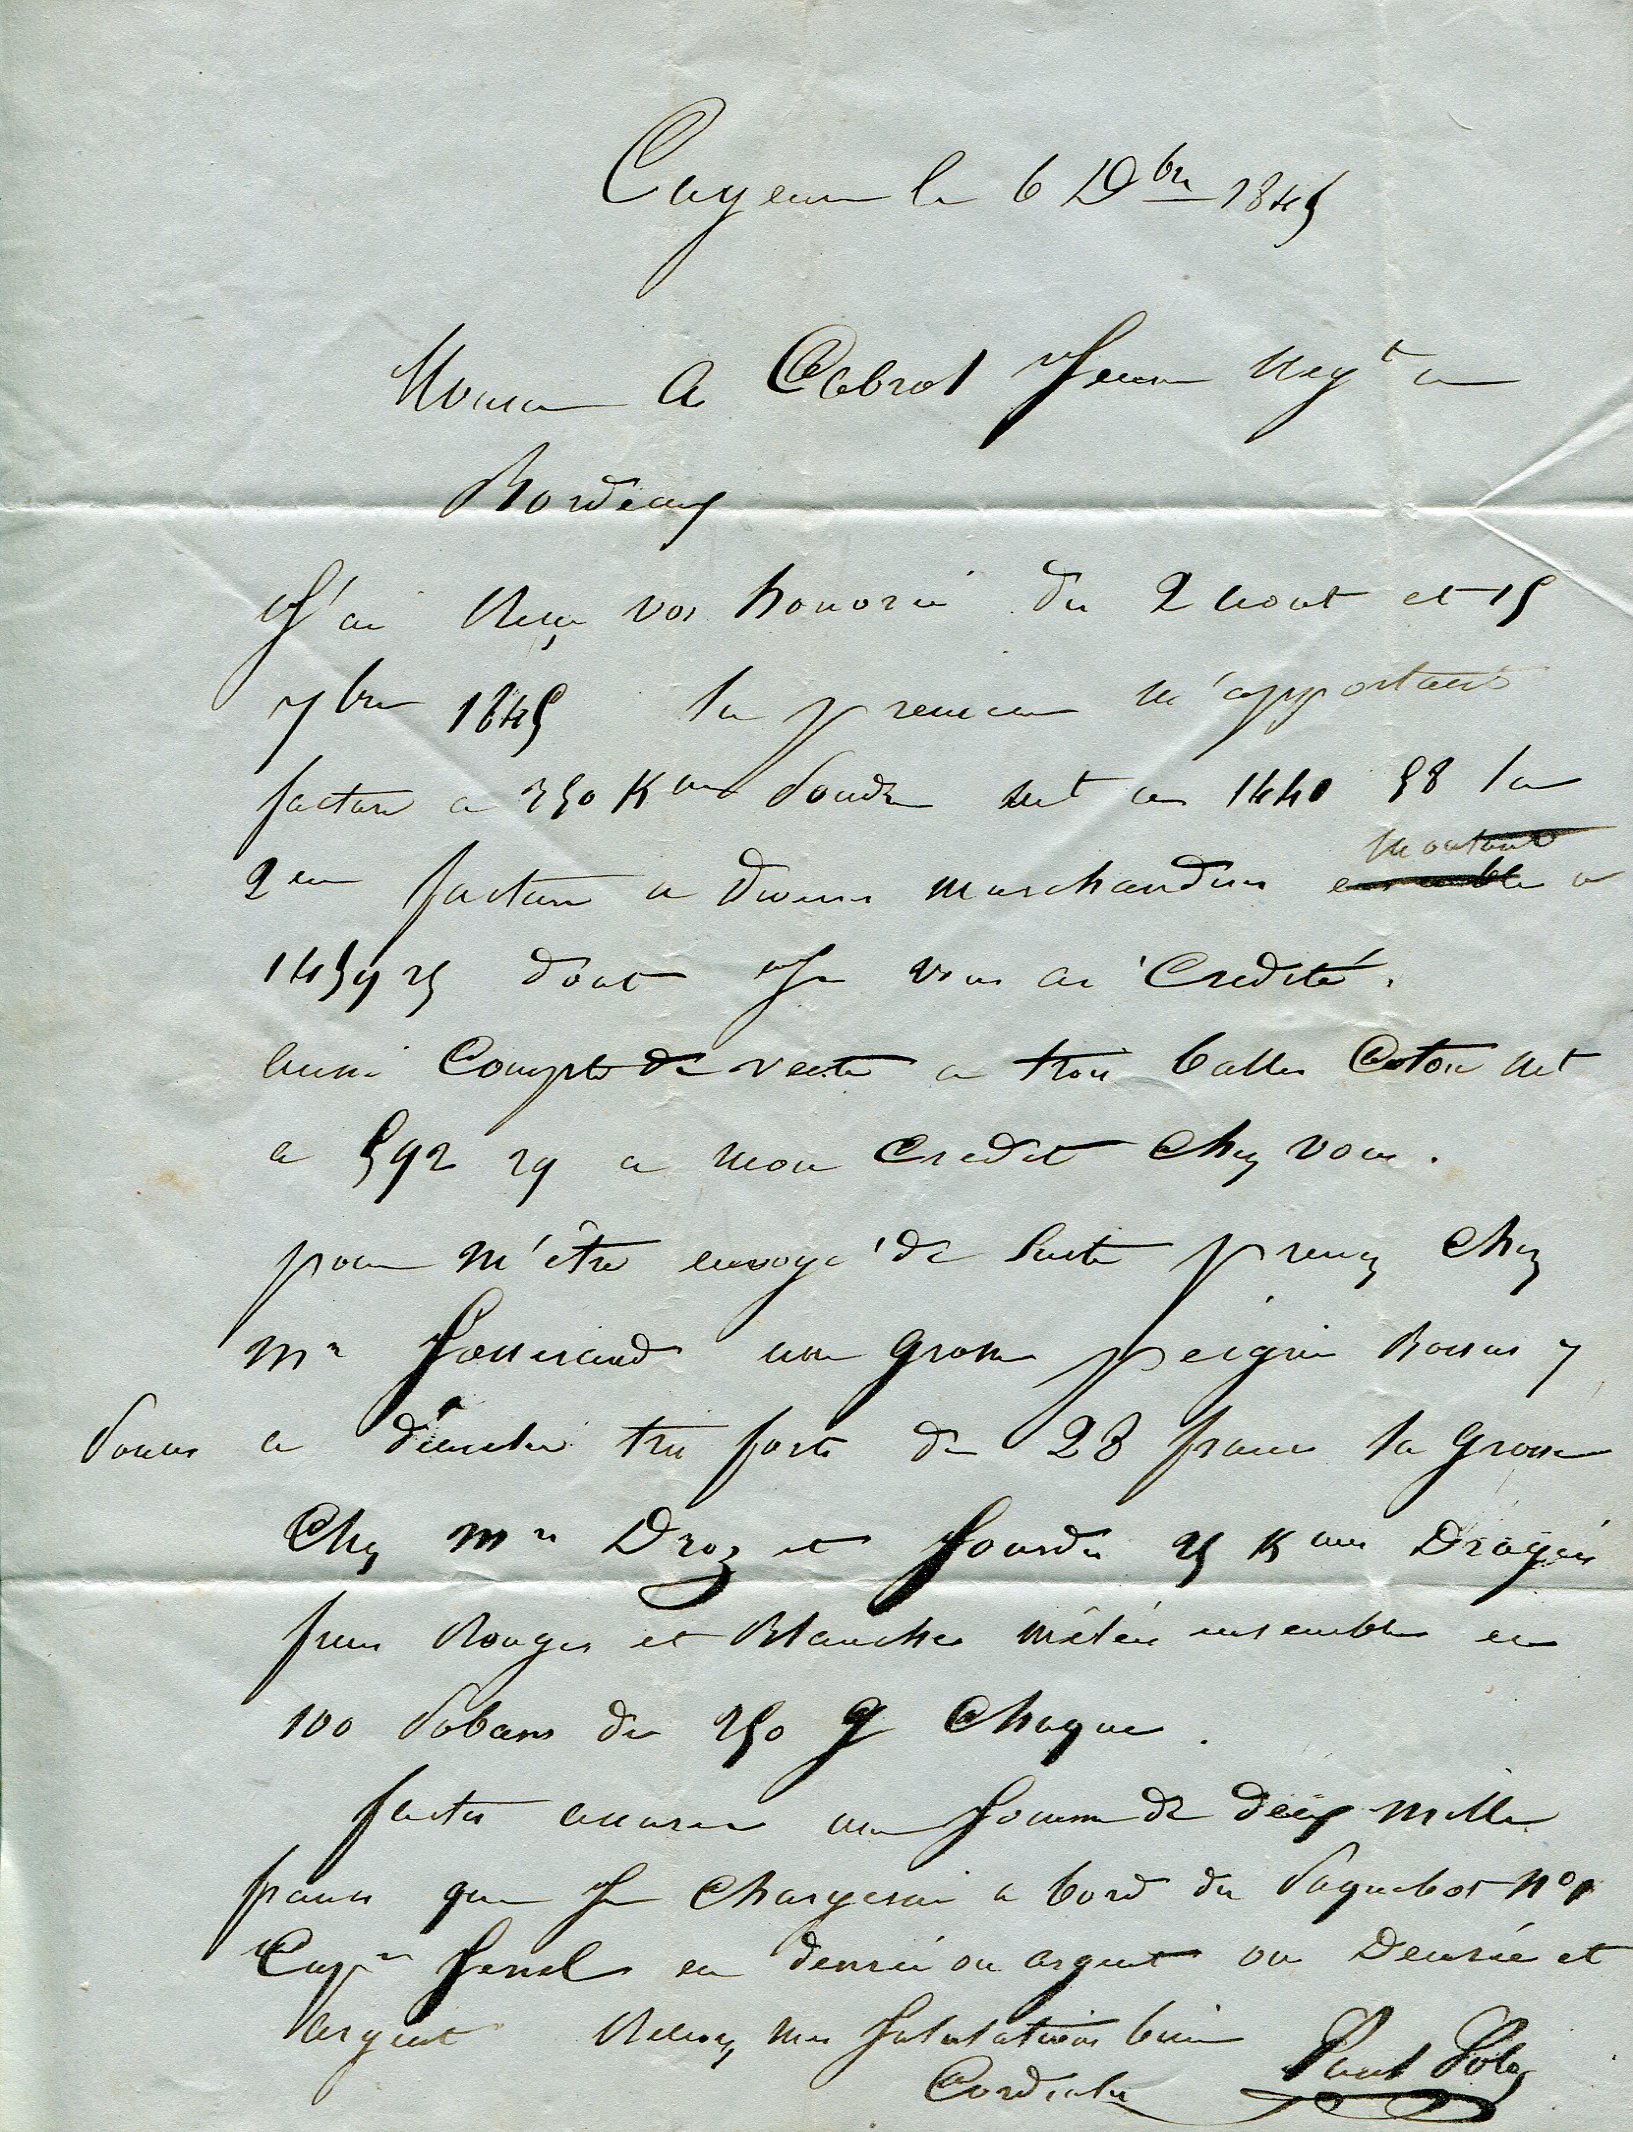 Cayenne le 6 Dbre 1845
Monsieur A Cabrol Jeune Negt a
Bordeaux
J'ai Reçu vos honorés du 2 aout et 15
7bre 1845 la premiere m'apportant
facture a 250 K mes Poudre net a 1440 58 la
2em facture a divers marchandises ensemble montant a
1459 25 dont je vous ai Credité.
aussi Compte de vente a trois balles Coton net
a 592 29 a mon Credit Chez vous.
pour m'être envoyé de suite prenez Chez
Mr une grosse peignes Bossus 7
pouces a démeler tres forts de 28 francs la Grosse
Chez Mrs Droz et Jourde 25 K mes Dragées
fines Rouges et Blanches mêlées ensemble en
100 bobans de 250 g Chaque.
faites assurer une Somme de deux mille
francs que je Chargerai a bord du Paquebot No 1
Capne en denrée ou argent ou Denrée et
Argent Recevez mes Salutations bien
Cordiales Paul